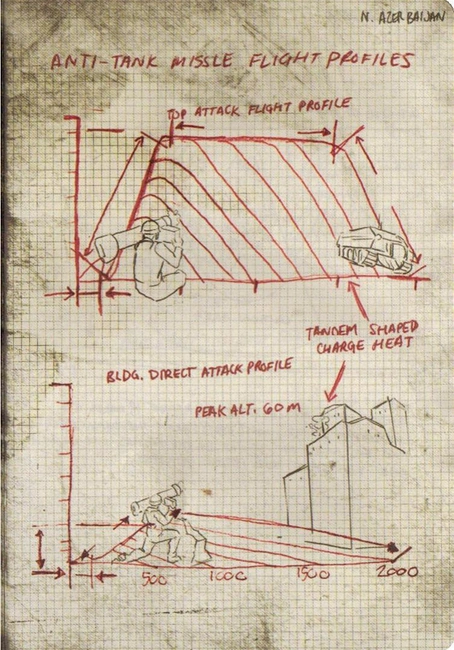 N. AZERBAIJAN
ANTI-TANK MISSLE FLIGHT PROFILES
TOP ATTACK FLIGHT PROFILE
TANDEM SHAPED
CHARGE HEAT
BLDG. DIRECT ATTACK PROFILE
PEAK ALT. 60M
500 1000 1500 2000